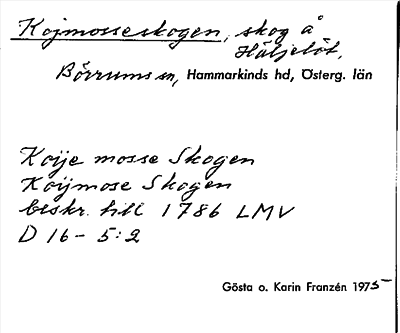 Kojmosseskogen, skog å
Häljelöt,
Börrums sn, Hammarkinds hd, Österg. län
Koije mosse Skogen
Koijmose Skogen
beskr. till 1786 LMV
D 16 - 5:2
Gösta o. Karin Franzén 1975